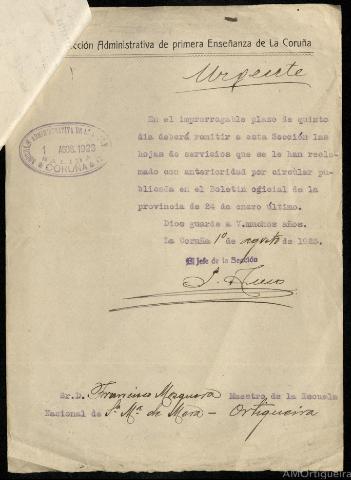 cción Administrativa de primera Enseñanza de La Coruña
Urgente
SECCIÓN ADMINISTRATIVA DE
1 AGOS. 1923
SALIDA
CORUÑA
En el improrrogable plazo de quinto
dia deberá remitir a esta Sección las
hojas de servicios que se le han recla-
mado con anterioridad por circular pu-
blicada en el Boletin oficial de la
provincia de 24 de enero último.
Dios guarde a V.muchos años.
La Coruña 1º de agosto de 1923.
El Jefe de la Sección
Sr.D. Francisco Mosquera Maestro de la Escuela
Nacional de Sª Mª de Mera - Ortigueira
AMOrtigueira